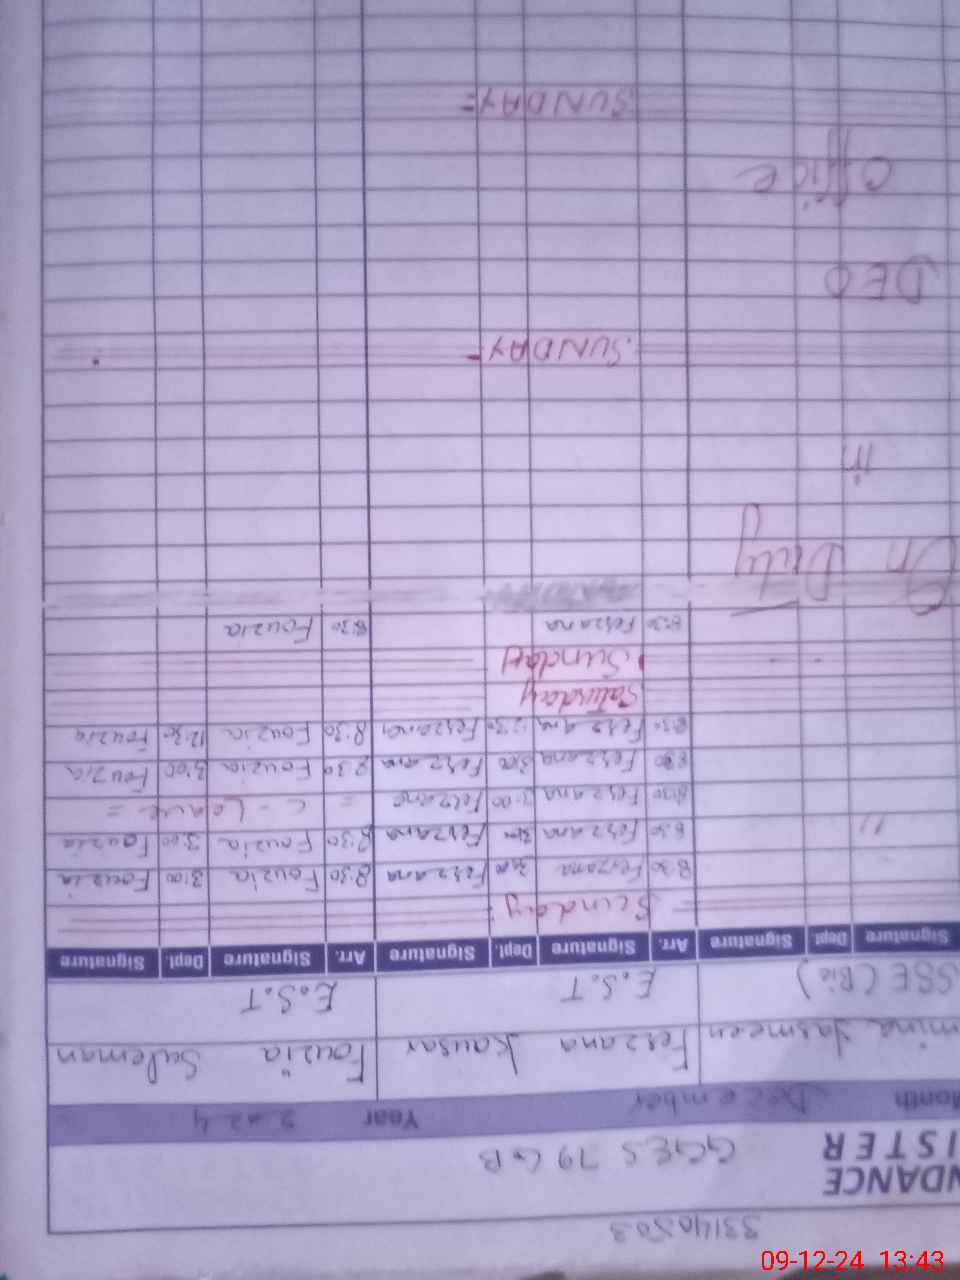 33140803
NDANCE
ISTER
GGES 79 GB
Month December Year 2024
mina Yasmeen Ferzana Kausar Fouzia Suleman
SSE (Bio) E.S.T E.S.T
Signature Dept. Signature Arr. Signature Dept. Signature Arr. Signature Dept. Signature
Sunday
8:30 Ferzana 3:00 Ferzana 8:30 Fouzia 3:00 Fouzia
11 8:30 Ferzana 3:00 Ferzana 8:30 Fouzia 3:00 Fouzia
8:30 Ferzana 3:00 Ferzana = C - Leave =
8:30 Ferzana 3:00 Ferzana 8:30 Fouzia 3:00 Fouzia
8:30 Ferzana 12:30 Ferzana 8:30 Fouzia 12:30 Fouzia
Saturday
Sunday
8:30 Ferzana 8:30 Fouzia
On Duty
in
SUNDAY
DEO
office
SUNDAY
09-12-24 13:43